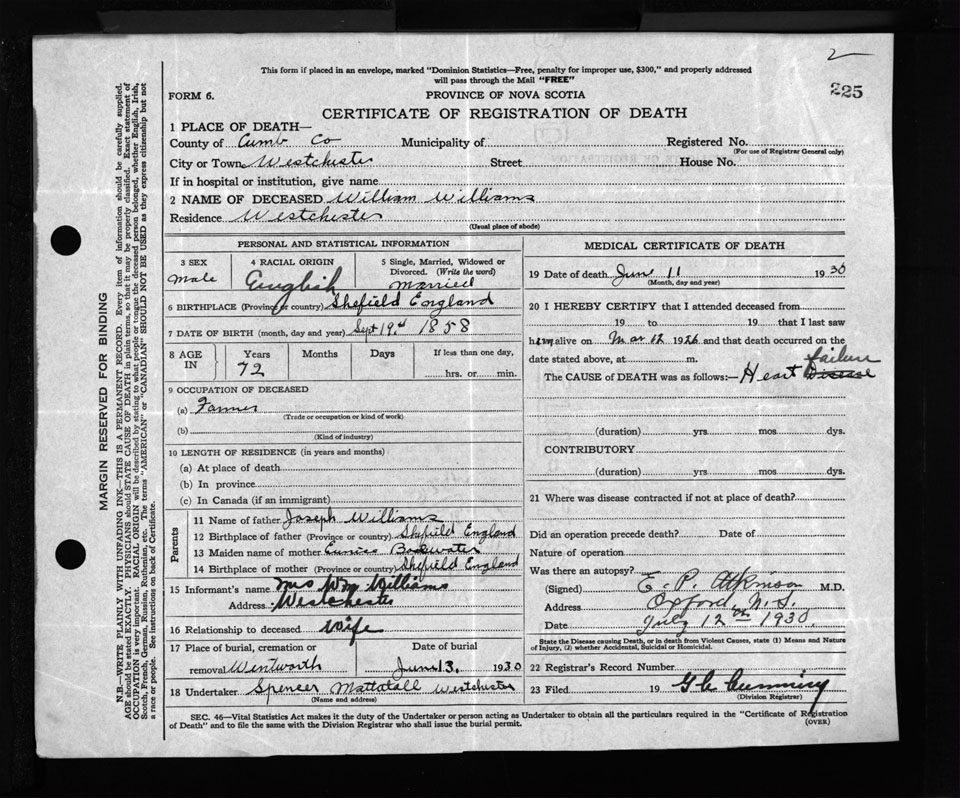 2
225
This form if placed in an envelope, marked "Dominion Statistics—Free, penalty for improper use, $300," and properly addressed
will pass through the Mail "FREE"
FORM 6.
PROVINCE OF NOVA SCOTIA
CERTIFICATE OF REGISTRATION OF DEATH
1 PLACE OF DEATH—
County of Cumb Co Municipality of Registered No.
(For use of Registrar General only)
City or Town Westchester Street House No.
If in hospital or institution, give name
2 NAME OF DECEASED William Williams
Residence Westchester
(Usual place of abode)
PERSONAL AND STATISTICAL INFORMATION
3 SEX
Male
4 RACIAL ORIGIN
English
5 Single, Married, Widowed or
Divorced. (Write the word)
Married
6 BIRTHPLACE (Province or country) Shefield England
7 DATE OF BIRTH (month, day and year) Sept 19 1858
8 AGE
IN
Years
72
Months
Days
If less than one day,
hrs. or min.
9 OCCUPATION OF DECEASED
(a) Farmer
(Trade or occupation or kind of work)
(b)
(Kind of industry)
10 LENGTH OF RESIDENCE (in years and months)
(a) At place of death
(b) In province
(c) In Canada (if an immigrant)
Parents
11 Name of father Joseph Williams
12 Birthplace of father (Province or country) Shefield England
13 Maiden name of mother Eunice
14 Birthplace of mother (Province or country) Shefield England
15 Informant's name Mrs Wm Williams
Address Westchester
16 Relationship to deceased Wife
17 Place of burial, cremation or Date of burial
removal Wentworth June 13. 1930
18 Undertaker Spencer Mattatall Westchester
(Name and address)
MEDICAL CERTIFICATE OF DEATH
19 Date of death June 11 1930
(Month, day and year)
20 I HEREBY CERTIFY that I attended deceased from
19 to 19 that I last saw
him alive on Mar 12 1926 and that death occurred on the
date stated above, at m.
failure
The CAUSE of DEATH was as follows:— Heart Disease
(duration) yrs. mos. dys.
CONTRIBUTORY
(duration) yrs. mos. dys.
21 Where was disease contracted if not at place of death?
Did an operation precede death? Date of
Nature of operation
Was there an autopsy?
(Signed) E. P. Atkinson M.D.
Address Oxford N.S.
Date July 12th 1930.
State the Disease causing Death, or in death from Violent Causes, state (1) Means and Nature
of Injury, (2) whether Accidental, Suicidal or Homicidal.
22 Registrar's Record Number
23 Filed 19
(Division Registrar)
SEC. 46—Vital Statistics Act makes it the duty of the Undertaker or person acting as Undertaker to obtain all the particulars required in the "Certificate of Registration
of Death" and to file the same with the Division Registrar who shall issue the burial permit.
(OVER)
MARGIN RESERVED FOR BINDING
N.B.—WRITE PLAINLY WITH UNFADING INK—THIS IS A PERMANENT RECORD. Every item of information should be carefully supplied.
AGE should be stated EXACTLY. PHYSICIANS should STATE CAUSE OF DEATH in plain terms, so that it may be properly classified. Exact statement of
OCCUPATION is very important. RACIAL ORIGIN will be described by stating to what people or tongue the deceased person belonged, whether English, Irish,
Scotch, French, German, Russian, Ruthenian, etc. The terms "AMERICAN" or "CANADIAN" SHOULD NOT BE USED as they express citizenship but not
a race or people. See instructions on back of Certificate.